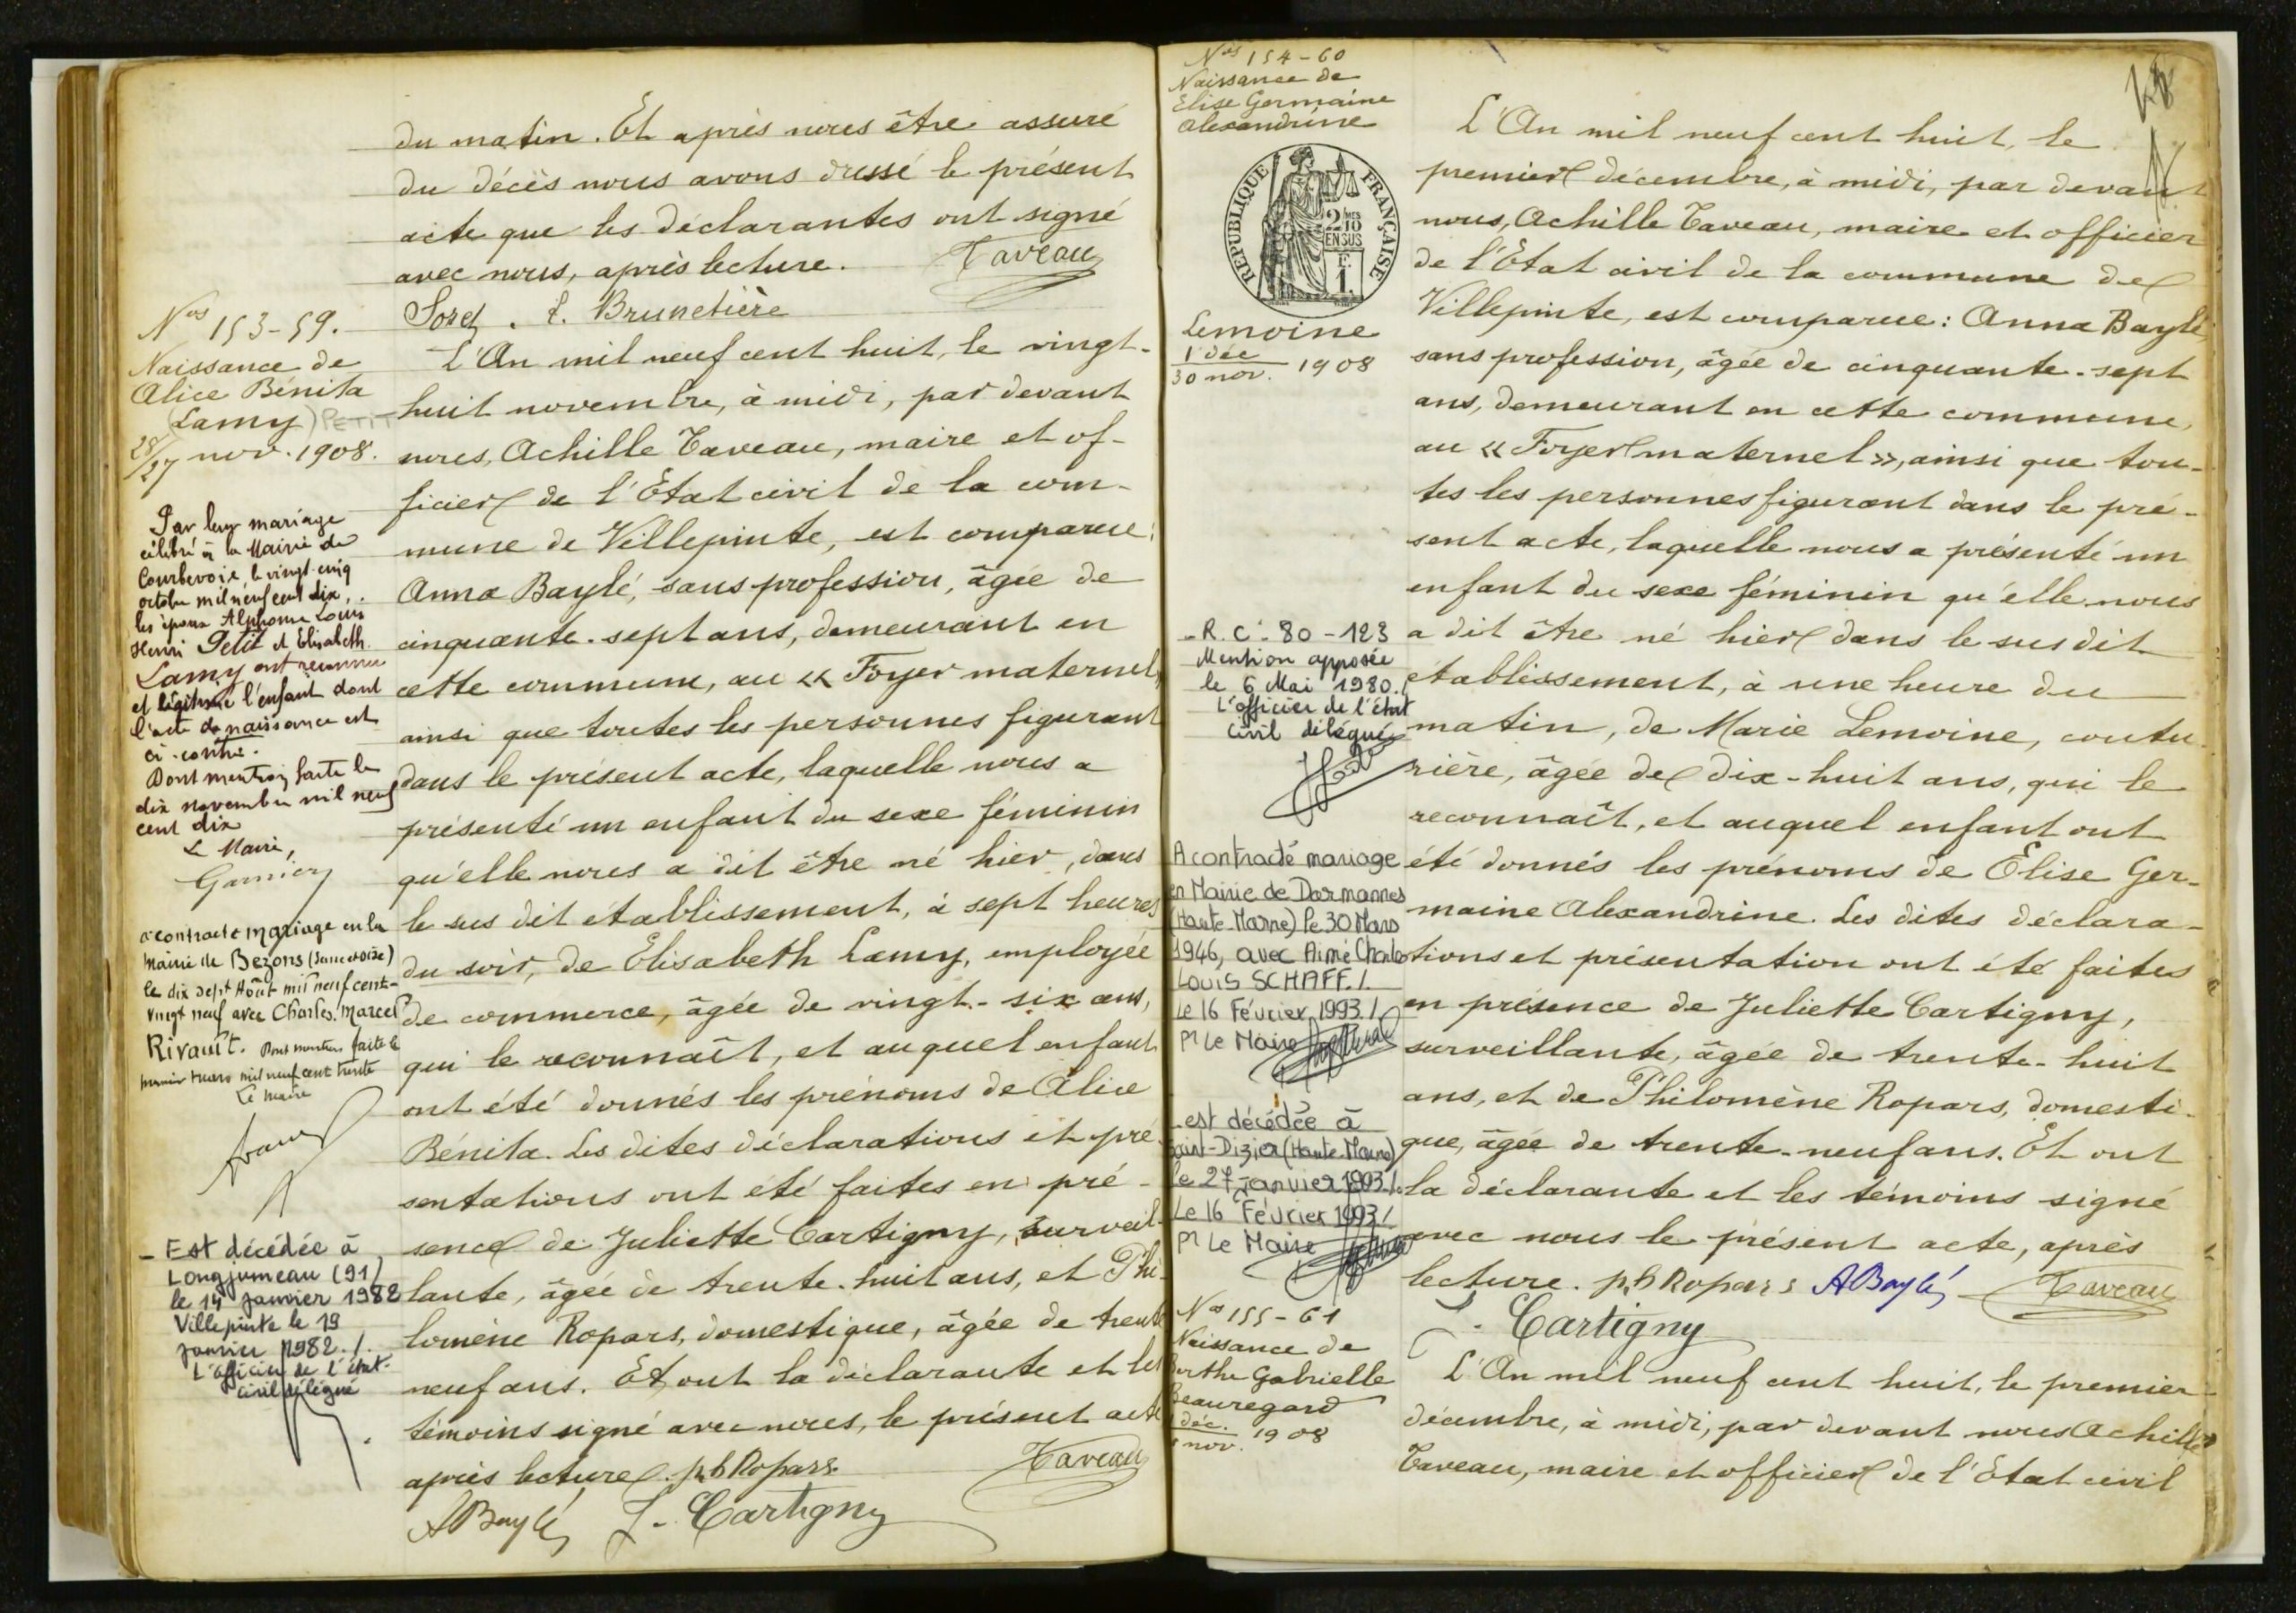 du matin. Et après nous être assuré
du décès nous avons dressé le présent
acte que les déclarantes ont signé
avec nous, après lecture. Taveau
Sorel. E. Brunetière
Nos 153-59.
Naissance de
Alice Bénita
(Lamy) PETIT
28/27 nov. 1908.
Par leur mariage
célébré à la Mairie de
Courbevoie, le vingt-cinq
octobre mil neuf cent dix,
les époux Alphonse Louis
Henri Petit et Elisabeth
Lamy ont reconnu
et légitimé l'enfant dont
l'acte de naissance est
ci-contre.
Dont mention faite le
dix novembre mil neuf
cent dix
Le Maire,
Garnier
a contracté mariage en la
mairie de Bezons (Seine et Oise)
le dix sept Août mil neuf cent-
vingt neuf avec Charles, Marcel
Rivault. Dont mention faite le
premier mars mil neuf cent trente
Le maire
- Est décédée à
Longjumeau (91)
le 14 janvier 1982
Villepinte le 19
janvier 1982./.
L'officier de l'état-
civil délégué
L'An mil neuf cent huit, le vingt-
huit novembre, à midi, par devant
nous, Achille Taveau, maire et of-
ficier de l'Etat civil de la com-
mune de Villepinte, est comparue:
Anna Baylé, sans profession, âgée de
cinquante-sept ans, demeurant en
cette commune, au « Foyer maternel,
ainsi que toutes les personnes figurant
dans le présent acte, laquelle nous a
présenté un enfant du sexe féminin
qu'elle nous a dit être né hier, dans
le sus dit établissement, à sept heures
du soir, de Elisabeth Lamy, employée
de commerce, âgée de vingt-six ans,
qui le reconnaît, et auquel enfant
ont été donnés les prénoms de Alice
Bénita. Les dites déclarations et pré-
sentations ont été faites en pré-
sence de Juliette Cartigny, surveil-
lante, âgée de trente-huit ans, et Phi-
lomène Ropars, domestique, âgée de trente
neuf ans. Et ont la déclarante et les
témoins signé avec nous, le présent acte
après lecture. ph Ropars Taveau
ABaylé J. Cartigny
Nos 154-60
Naissance de
Elise Germaine
Alexandrine
RÉPUBLIQUE FRANÇAISE
2/10
EN SUS
F.
1.
Lemoine
1 déc
30 nov. 1908
- R. C. 80-123
Mention apposée
le 6 Mai 1980./
L'officier de l'état
civil délégué
A contracté mariage
en Mairie de Darmannes
(Haute-Marne) le 30 Mars
1946, avec Aimé Charles
Louis SCHAFF./.
Le 16 Février 1993./
Pr Le Maire
est décédée à
Saint-Dizier (Haute-Marne)
le 27 janvier 1993./.
Le 16 Février 1993./
Pr Le Maire
L'An mil neuf cent huit, le
premier décembre, à midi, par devant
nous, Achille Taveau, maire et officier
de l'Etat civil de la commune de
Villepinte, est comparue: Anna Baylé,
sans profession, âgée de cinquante-sept
ans, demeurant en cette commune,
au « Foyer maternel », ainsi que tou-
tes les personnes figurant dans le pré-
sent acte, laquelle nous a présenté un
enfant du sexe féminin qu'elle nous
a dit être né hier dans le sus dit
établissement, à une heure du
matin, de Marie Lemoine, coutu-
rière, âgée de dix-huit ans, qui le
reconnaît, et auquel enfant ont
été donnés les prénoms de Elise Ger-
maine Alexandrine. Les dites déclara-
tions et présentation ont été faites
en présence de Juliette Cartigny,
surveillante, âgée de trente-huit
ans, et de Philomène Ropars, domesti-
que, âgée de trente-neuf ans. Et ont
la déclarante et les témoins signé
avec nous le présent acte, après
lecture. ph Ropars ABaylé Taveau
J. Cartigny
Nos 155-61
Naissance de
Berthe Gabrielle
Beauregard
1 déc.
nov. 1908
L'An mil neuf cent huit, le premier
décembre, à midi, par devant nous Achille
Taveau, maire et officier de l'Etat civil